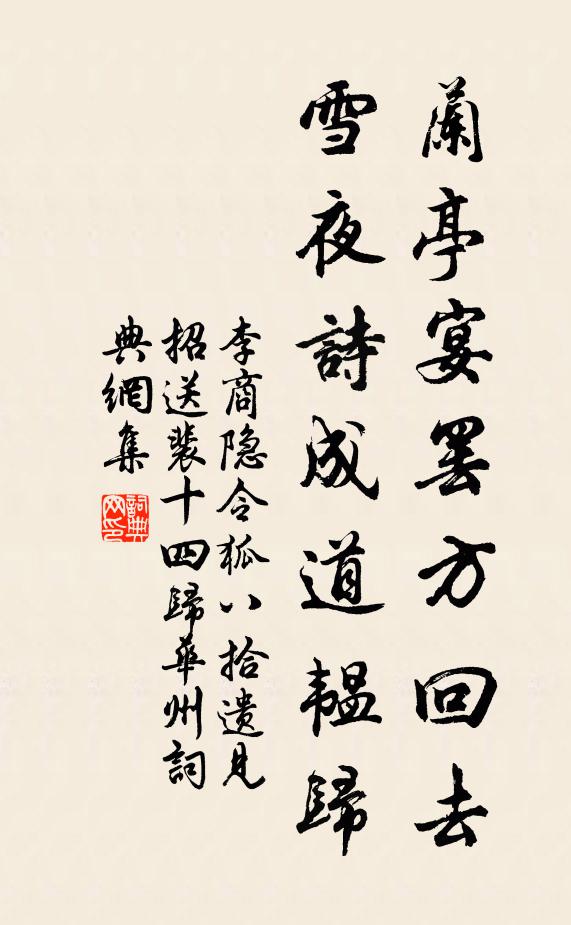 蘭亭宴罷方回去
雪夜詩成道韞歸
李商隐令狐八拾遺見
招送裴十四歸華州詞
典網集
詞典
网印